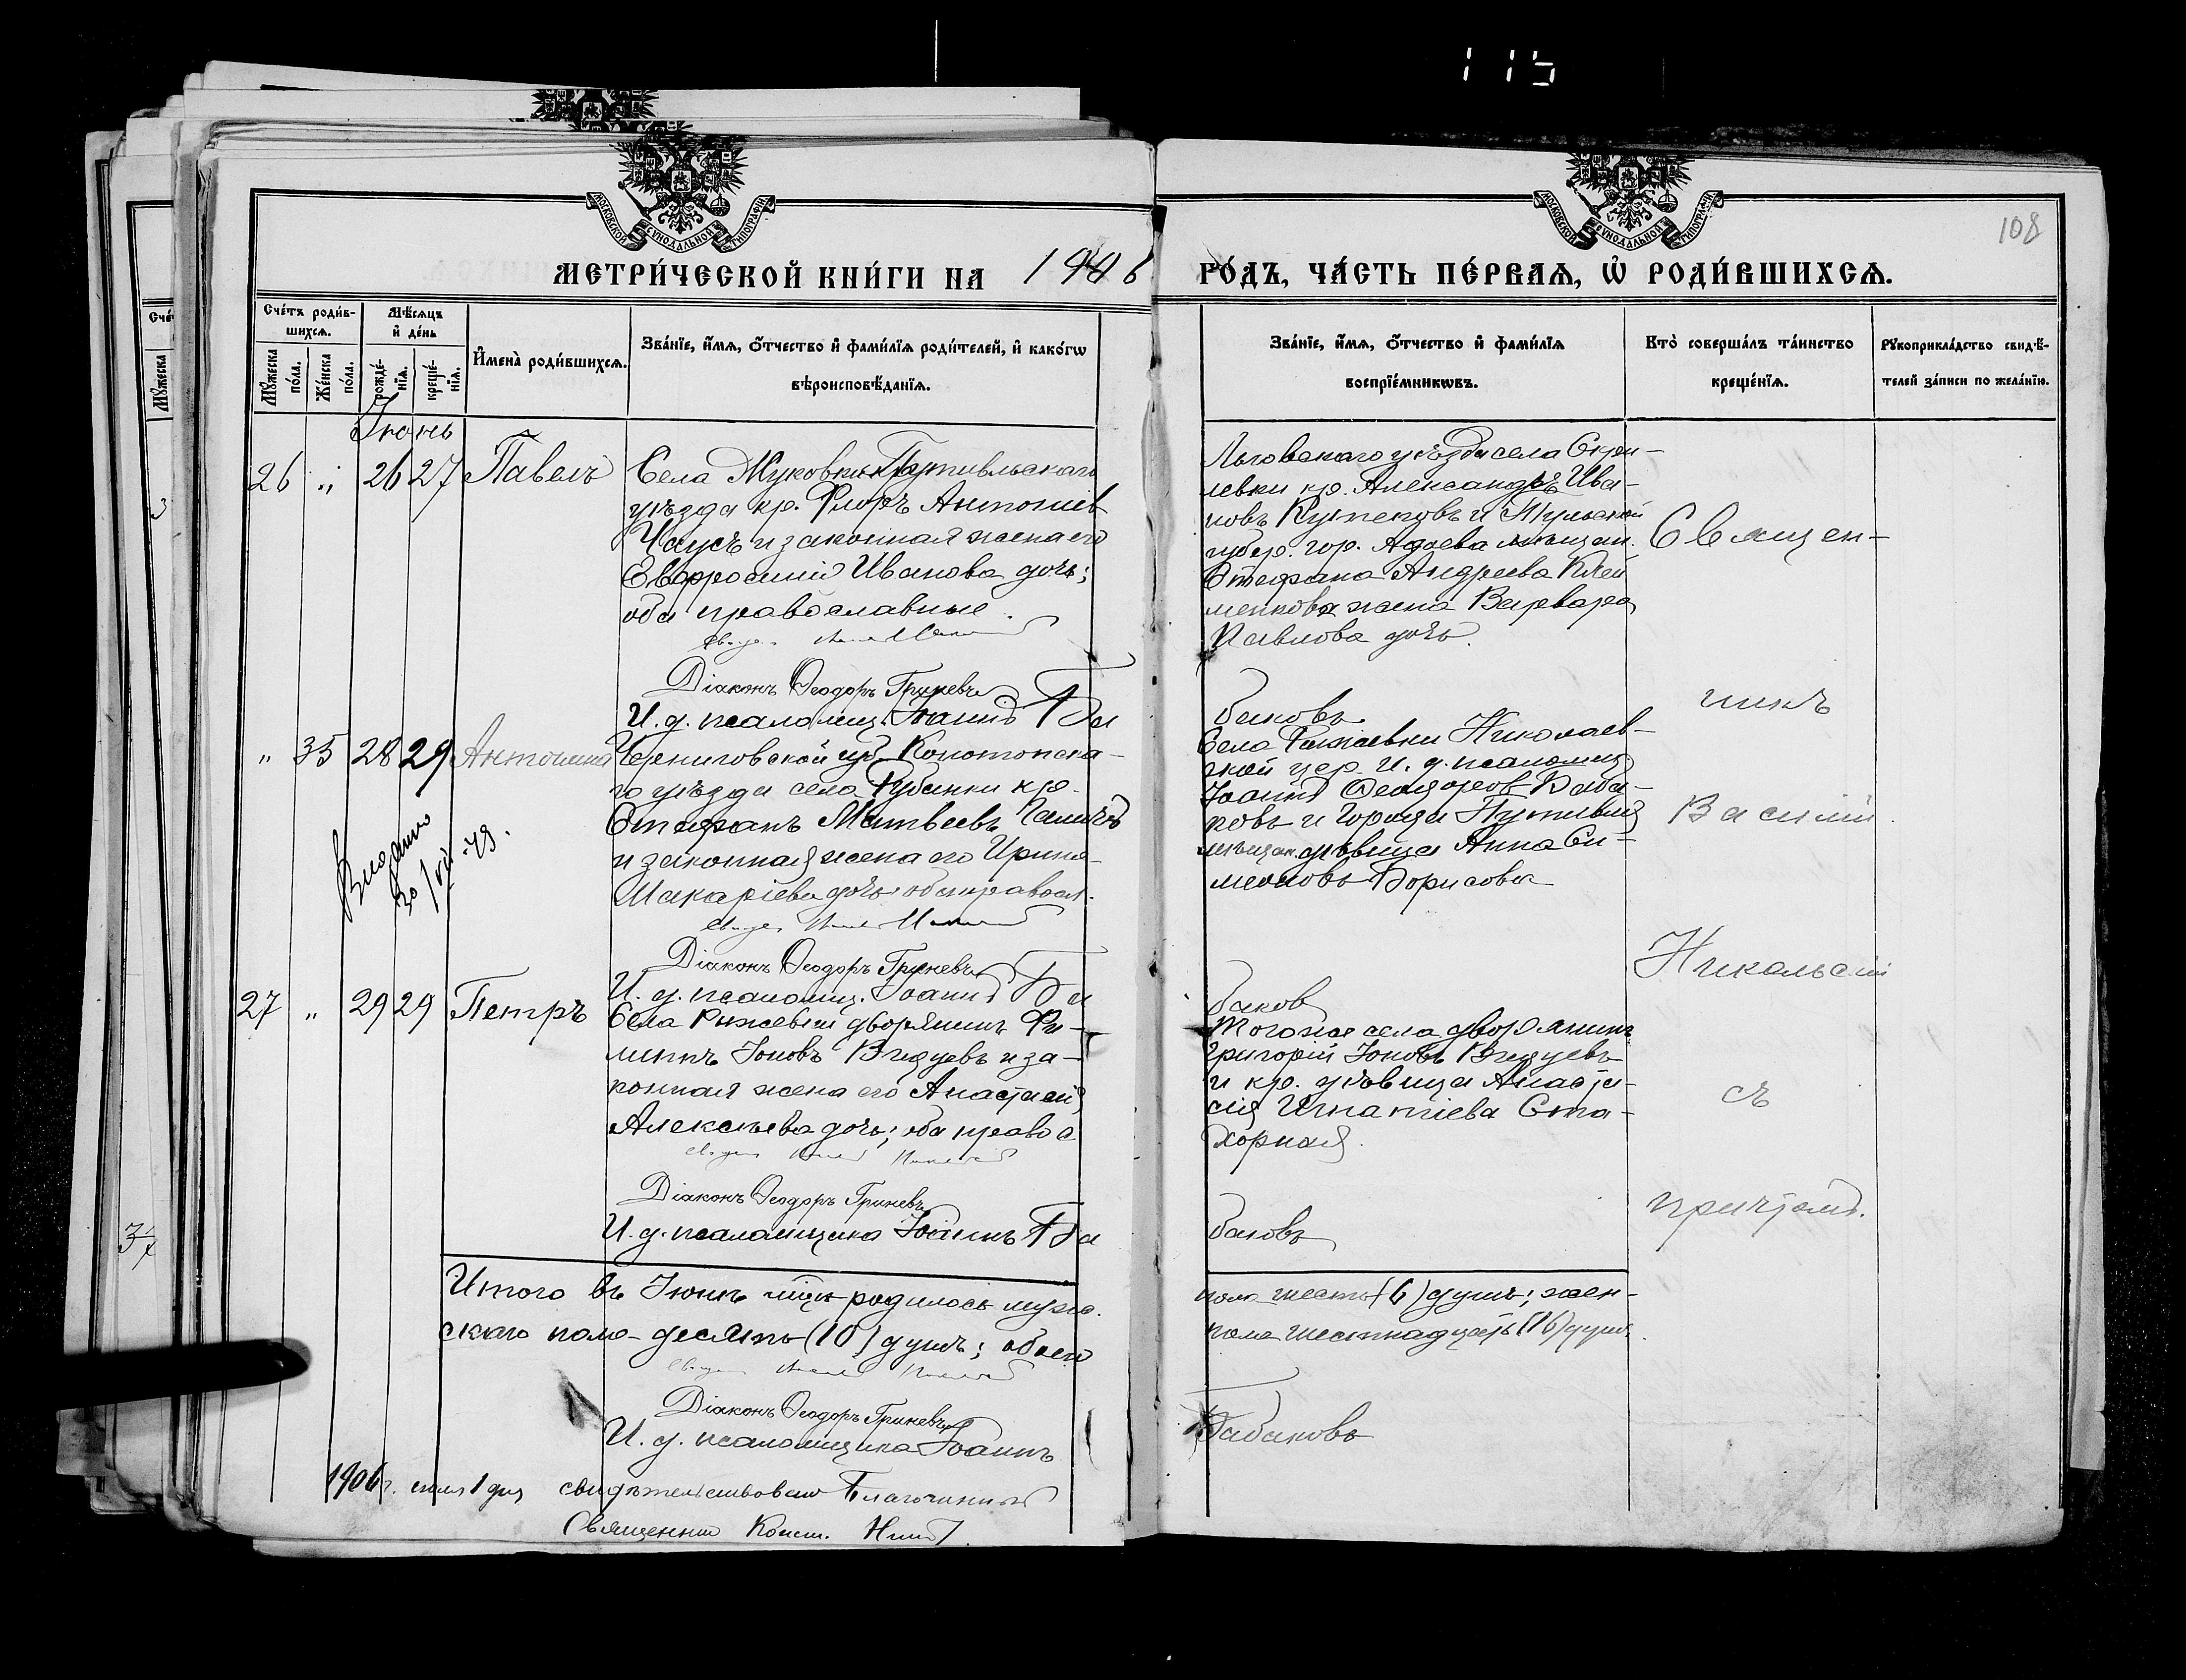 115
108
МЕТРИ́ЧЕСКОЙ КНИ́ГИ НА 1906
РО́ДЪ, ЧА́СТЬ ПЕ́РВАѦ, Ѽ РОДИ́ВШИХСѦ.
Сче́тъ роди́в-
шихсѧ.
Мꙋ́жеска по́ла.
Же́нска по́ла.
Мѣ́сѧцъ
и҆ де́нь
рожде́-
нїѧ.
креще́-
нїѧ.
И҆мена̀ роди́вшихсѧ.
Зва́нїе, и҆́мѧ, ѻ҆́тчество и҆ фами́лїѧ роди́телей, и҆ како́гѡ
вѣроисповѣ́данїѧ.
Зва́нїе, и҆́мѧ, ѻ҆́тчество и҆ фами́лїѧ
воспрїе́мникѡвъ.
Кто̀ соверша́лъ та́инство
креще́нїѧ.
Рꙋкоприкла́дство свидѣ́-
телей за́писи по жела́нїю.
Іюнь
26 " 26 27 Павелъ
Села Жуковки Путивльскаго
уѣзда кр. Флоръ Антоніев
Чаусъ и законная жена его
Евфросинія Иванова дочь;
оба православные.
Діаконъ Ѳеодоръ Гриневъ
И. д. псаломщ. Іоаннъ Ба
Льговскаго уѣзда села
кр. Александръ Ива-
новъ и Тульской
губер. гор. мѣщан.
Стефана Андреева
жена Варвара
Павлова дочь.
баковъ
" 35 28 29 Антонина
Черниговской губ. Конотопска-
го уѣзда села кр.
Стефанъ Матвеевъ
и законная жена его Ирина
Макаріева дочь; оба правосл.
Діаконъ Ѳеодоръ Гриневъ
И. д. псаломщ. Іоаннъ Ба
Выдано
30/VII-49.
Села Рыжевки Николаев-
ской цер. И. д. псаломщ.
Іоаннъ Ѳеодоров Баба-
ковъ и города Путивля
мѣщан. дѣвица Анна Си-
меонова Борисова
баков
27 " 29 29 Петръ
Села Рыжевки дворянинъ Фи-
липпъ Іоновъ и за-
конная жена его Анастасія
Алексѣева дочь; оба правос
Діаконъ Ѳеодоръ Гриневъ
И. д. псаломщика Іоаннъ Ба
Того же села дворянинъ
Григорій Іоновъ
и кр. дѣвица Анаста-
сія Игнатіева Ста-
хорная.
баковъ
Священ-
никъ
Василій
Никольскій
съ
причтомъ.
Итого въ Іюнѣ мцѣ родилось муже-
скаго пола - десять (10) душъ; обоего
пола шесть (6) душъ; жен-
пола шестнадцать (16) душъ.
Діаконъ Ѳеодоръ Гриневъ
И. д. псаломщика Іоаннъ
Бабаковъ
1906 г. 1 дня свидѣтельствовалъ Благочинный
Священникъ Конст.
37